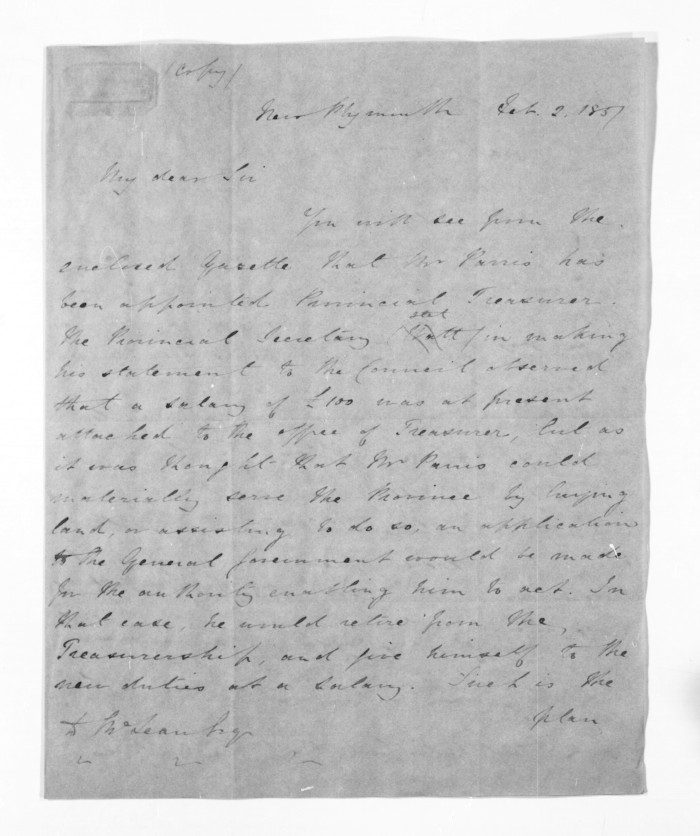 (Copy)
New Plymouth Feb. 2. 1857
My dear Sir
You will see from the
enclosed Gazette that Mr Parris has
been appointed Provincial Treasurer.
The Provincial Secretary in making
his statement to the Council observed
that a salary of £100 was at present
attached to the office of Treasurer, but as
it was thought that Mr Parris could
materially serve the Province by buying
land, or assisting to do so, an application
to the General Government would be made
for the authority enabling him to act. In
that case, he would retire from the
Treasurership, and give himself to the
new duties at a salary. Such is the
plan
to McLean Esq